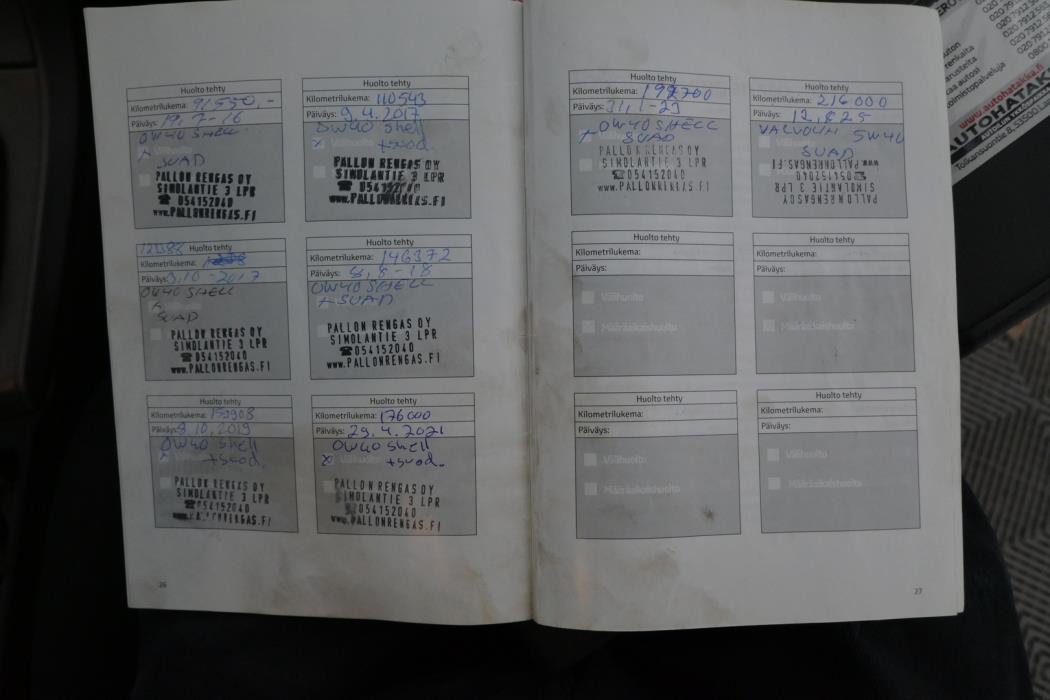 Huolto tehty
Kilometrilukema: 91550,-
Päiväys: 19.7-16
0W40 SHELL
+
SUAD
PALLON RENGAS OY
SIMOLANTIE 3 LPR
☎ 054152040
www.PALLONRENGAS.FI
Huolto tehty
Kilometrilukema: 110543
Päiväys: 9.4.2017
0W40 Shell
x +suod.
PALLON RENGAS OY
SIMOLANTIE 3 LPR
☎ 054152040
www.PALLONRENGAS.FI
Huolto tehty
Kilometrilukema:
Päiväys: 3,10-2017
0W40 SHELL
+
SUAD
PALLON RENGAS OY
SIMOLANTIE 3 LPR
☎ 054152040
www.PALLONRENGAS.FI
Huolto tehty
Kilometrilukema: 146372
Päiväys: 8,8-18
0W40 SHELL
+ SUAD
PALLON RENGAS OY
SIMOLANTIE 3 LPR
☎ 054152040
www.PALLONRENGAS.FI
Huolto tehty
Kilometrilukema:
Päiväys: 8.10.2019
0W40 Shell
x +suod.
PALLON RENGAS OY
SIMOLANTIE 3 LPR
☎ 054152040
PALLONRENGAS.FI
Huolto tehty
Kilometrilukema: 176000
Päiväys: 29.4.2021
0W40 Shell
x Välihuolto +suod.
PALLON RENGAS OY
SIMOLANTIE 3 LPR
054152040
www.PALLONRENGAS.FI
26
Huolto tehty
Kilometrilukema:
Päiväys: 31,1-23
0W40 SHELL
+ SUAD
PALLON RENGAS OY
SIMOLANTIE 3 LPR
☎ 054152040
www.PALLONRENGAS.FI
Huolto tehty
Kilometrilukema: 216000
Päiväys: 12,8 25
5W40
SUAD
PALLON RENGAS OY
SIMOLANTIE 3 LPR
☎ 054152040
www.PALLONRENGAS.FI
Huolto tehty
Kilometrilukema:
Päiväys:
Välihuolto
Määräaikaishuolto
Huolto tehty
Kilometrilukema:
Päiväys:
Välihuolto
Määräaikaishuolto
Huolto tehty
Kilometrilukema:
Päiväys:
Välihuolto
Määräaikaishuolto
Huolto tehty
Kilometrilukema:
Päiväys:
Välihuolto
Määräaikaishuolto
27
www.autohatakka.fi